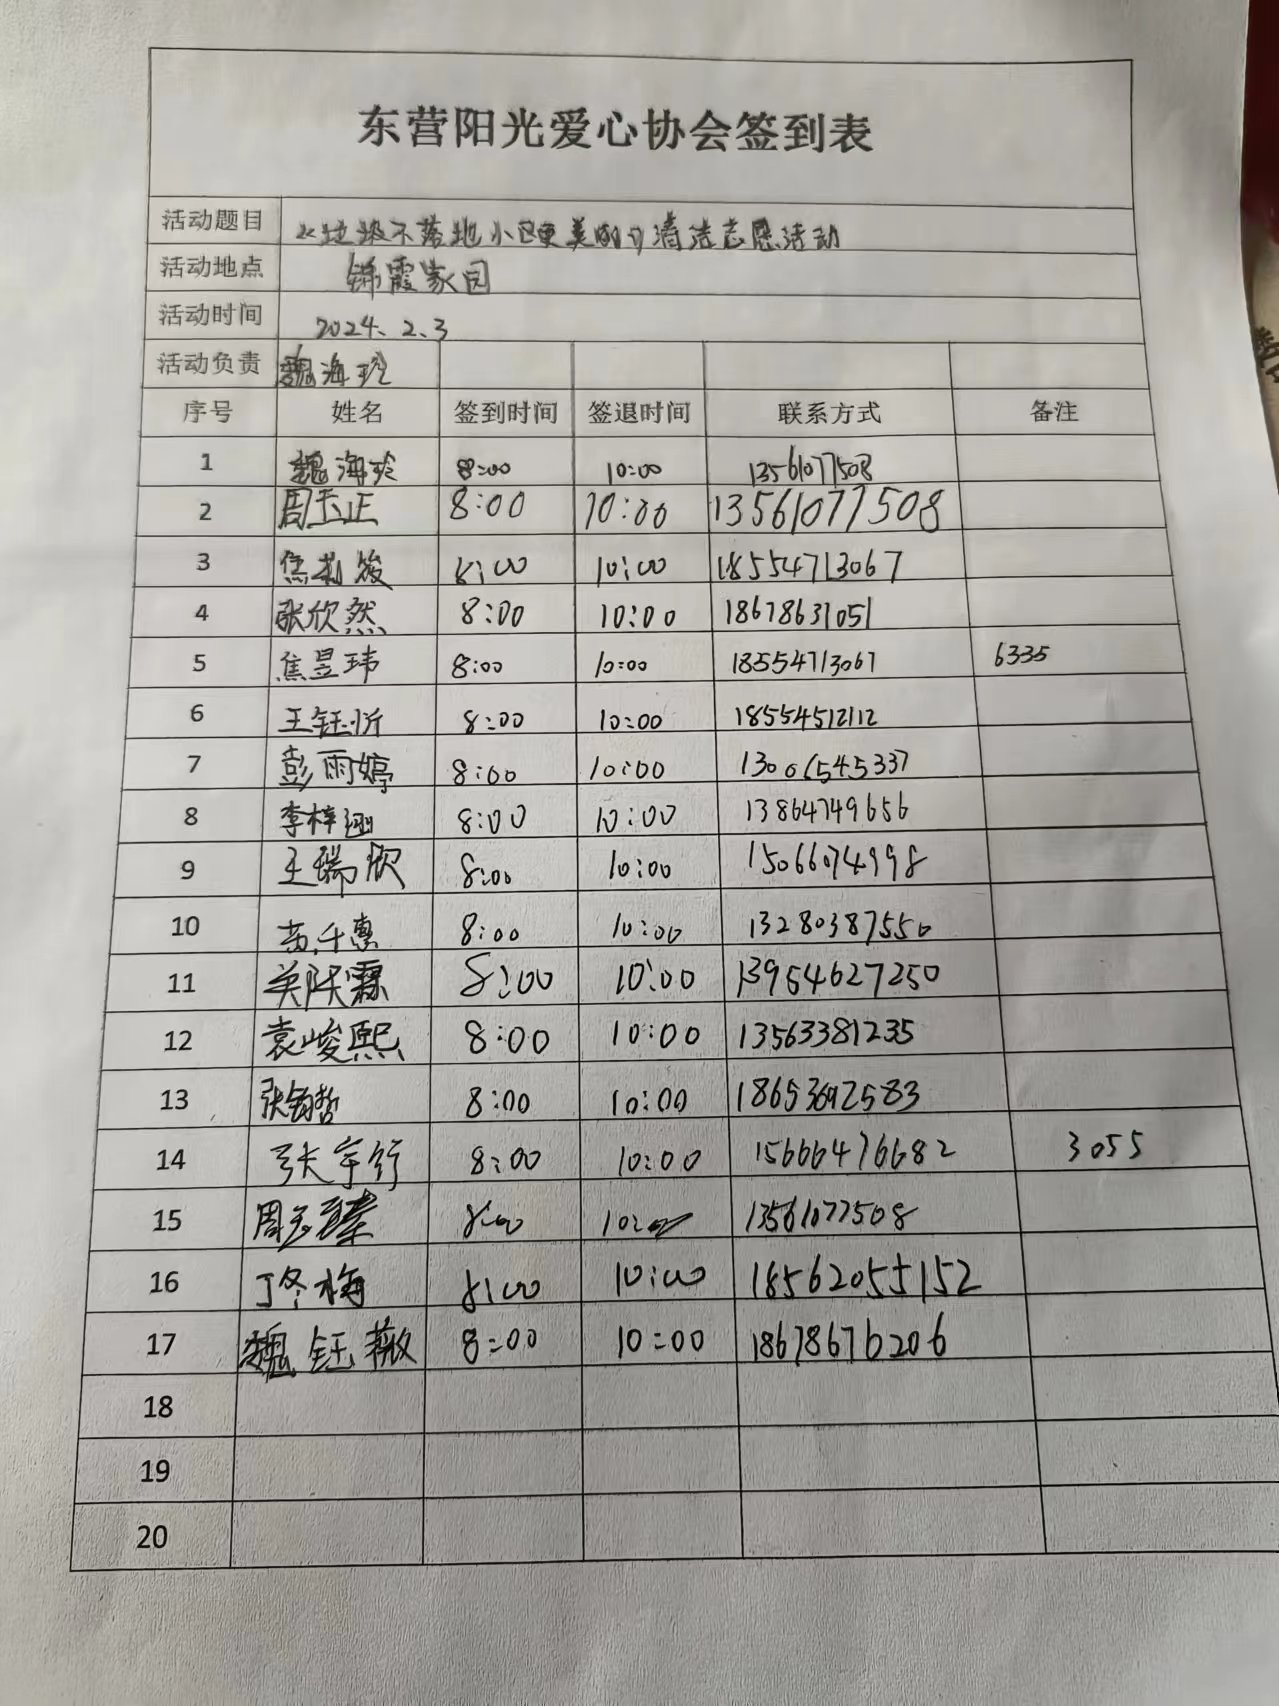 东营阳光爱心协会签到表
活动题目 《垃圾不落地小区更美的》清洁志愿活动
活动地点 锦霞家园
活动时间 2024、2、3
活动负责 魏海玲
序号 姓名 签到时间 签退时间 联系方式 备注
1 魏海玲 8:00 10:00 13561077508
2 周玉正 8:00 10:00 13561077508
3 焦利俊 8:00 10:00 18554713067
4 张欣然 8:00 10:00 18678631051
5 焦昱玮 8:00 10:00 18554713067 6335
6 王钰忻 8:00 10:00 18554512112
7 彭雨婷 8:00 10:00 13006545337
8 李梓 8:00 10:00 13864749656
9 王瑞欣 8:00 10:00 15066074998
10 苗千惠 8:00 10:00 13280387550
11 8:00 10:00 13954627250
12 袁峻熙 8:00 10:00 13563381235
13 8:00 10:00 18653692583
14 张宇行 8:00 10:00 15666476682 3055
15 周玉臻 8:00 10:00 13561077508
16 丁冬梅 8:00 10:00 18562055152
17 魏钰薇 8:00 10:00 18678676206
18
19
20